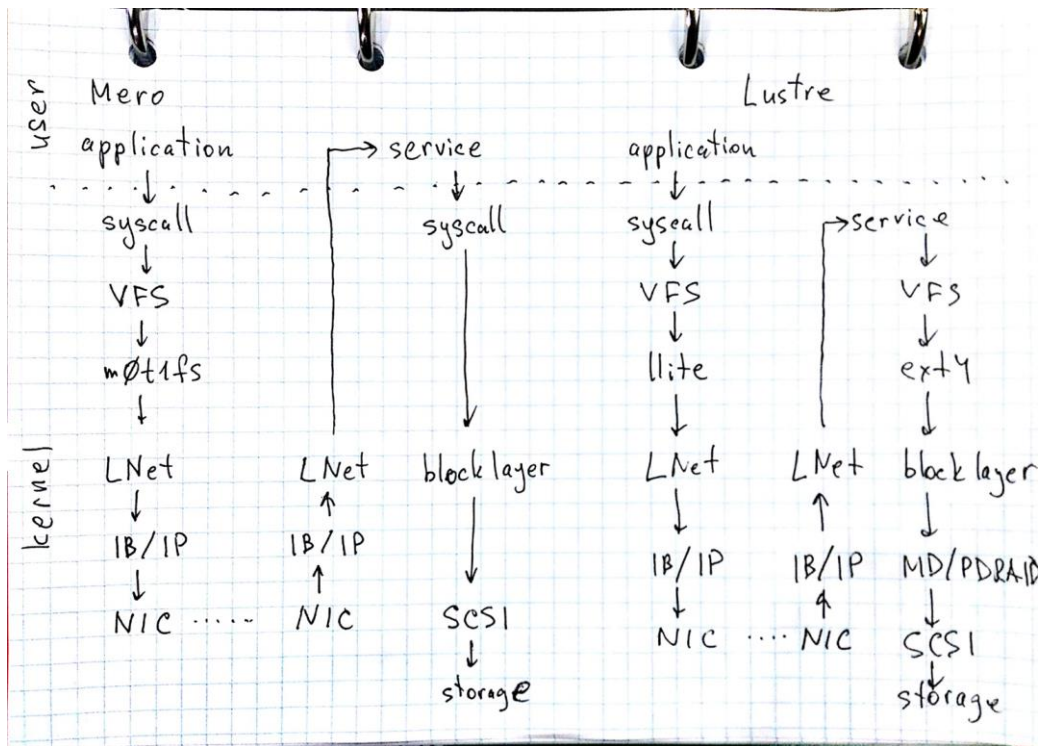 user
kernel
Mero
application
syscall
VFS
mØt1fs
LNet
IB/IP
NIC ..... NIC
IB/IP
LNet
service
syscall
block layer
SCSI
storage
Lustre
application
syscall
VFS
llite
LNet
IB/IP
NIC .... NIC
IB/IP
LNet
service
VFS
ext4
block layer
MD/PDRAID
SCSI
storage